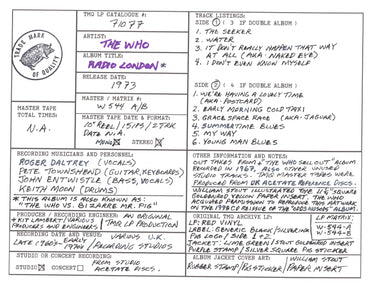 TMQ LP CATALOGUE #:
71077
TRADE MARK
OF QUALITY
ARTIST:
THE WHO
ALBUM TITLE:
RADIO LONDON*
RELEASE DATE:
1973
MASTER / MATRIX #:
W 544 A/B
MASTER TAPE
TOTAL TIMES:
N.A.
MASTER TAPE DATE & FORMAT:
10" REEL / 15 IPS / 2TRK
DATE N.A.
MONO STEREO
TRACK LISTINGS:
SIDE 1 ( 3 IF DOUBLE ALBUM )
1. THE SEEKER
2. WATER
3. IT DON'T REALLY HAPPEN THAT WAY
AT ALL (AKA: NAKED EYE)
4. I DON'T EVEN KNOW MYSELF
SIDE 2 ( 4 IF DOUBLE ALBUM )
1. WE'RE HAVING A LOVELY TIME
(AKA: POSTCARD)
2. EARLY MORNING COLD TAXI
3. GRACE SPACE RACE (AKA: JAGUAR)
4. SUMMERTIME BLUES
5. MY WAY
6. YOUNG MAN BLUES
RECORDING MUSICIANS AND PERSONNEL:
ROGER DALTREY (VOCALS)
PETE TOWNSHEND (GUITAR, KEYBOARDS)
JOHN ENTWISTLE (BASS, VOCALS)
KEITH MOON (DRUMS)
* THIS ALBUM IS ALSO KNOWN AS:
"THE WHO VS. BIZARRE MR. PIG"
PRODUCER / RECORDING ENGINEER: AN ORIGINAL
* KIT LAMBERT / VARIOUS TMQ LP PRODUCTION
PRODUCERS AND ENGINEERS
RECORDING DATE AND VENUE: VARIOUS U.K.
LATE 1960s - EARLY 1970s / RECORDING STUDIOS
STUDIO OR CONCERT RECORDING:
STUDIO CONCERT FROM STUDIO
ACETATE DISCS.
OTHER INFORMATION AND NOTES:
OUT TAKES FROM "THE WHO SELL OUT" ALBUM
RECORDED IN 1967, ALSO OTHER UNUSED
STUDIO TRACKS. TMQ MASTER TAPES WERE
PRODUCED FROM UK ACETATE REFERENCE DISCS.
WILLIAM STOUT ILLUSTRATED THE SQUARE
GOLDENROD VELLUM PAPER INSERT. THE WHO
ACQUIRED PERMISSION TO REPRODUCE THIS ARTWORK
ORIGINAL TMQ ARCHIVE LP:
LP: RED VINYL
LABEL: GENERIC BLANK / SILVER INK
PIG LOGO / SIDE 1 & 2
JACKET: LIME GREEN / STOUT GOLDENROD INSERT
PURPLE STAMP / SILVER SQUARE PIG STICKER
LP MATRIX:
W-544-A
W-544-B
ALBUM JACKET COVER ART: WILLIAM STOUT
RUBBER STAMP / PIG STICKER / PAPER INSERT